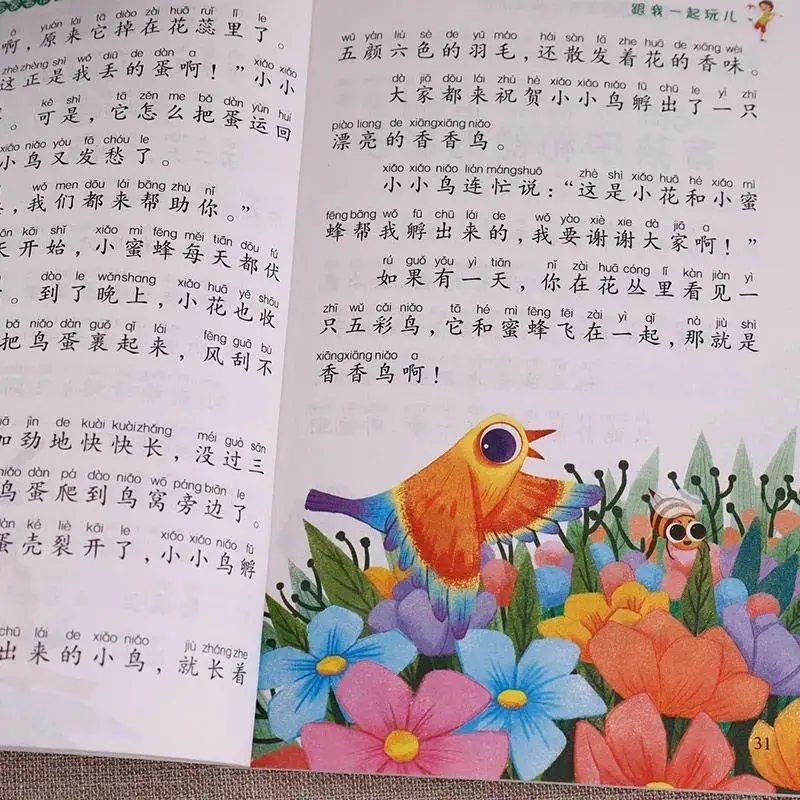 yuán lái tā diào zài huā ruǐ lǐ le
啊，原来它掉在花蕊里了。
zhè zhèng shì wǒ diū de dàn a xiǎo xiǎo
这正是我丢的蛋啊！”小小
kě shì tā zěn me bǎ dàn yùn huí
。可是，它怎么把蛋运回
xiǎo niǎo yòu fā chóu le
小鸟又发愁了。
wǒ men dōu lái bāng zhù nǐ
，我们都来帮助你。”
kāi shǐ xiǎo mì fēng měi tiān dōu fú
天开始，小蜜蜂每天都伏
dào le wǎnshang xiǎo huā yě shōu
。到了晚上，小花也收
bǎ niǎo dàn guǒ qǐ lái fēng guā bù
把鸟蛋裹起来，风刮不
jiā jìn de kuài kuàizhǎng méi guò sān
加劲地快快长，没过三
niǎo dàn pá dào niǎo wō páng biān le
鸟蛋爬到鸟窝旁边了。
dàn ké liè kāi le xiǎo xiǎo niǎo fū
蛋壳裂开了，小小鸟孵
chū lái de xiǎo niǎo jiù zhǎng zhe
出来的小鸟，就长着
跟我一起玩儿
wǔ yán liù sè de yǔ máo hái sàn fā zhe huā de xiāng wèi
五颜六色的羽毛，还散发着花的香味。
dà jiā dōu lái zhù hè xiǎo xiǎo niǎo fū chū le yì zhī
大家都来祝贺小小鸟孵出了一只
piào liang de xiāngxiāng niǎo
漂亮的香香鸟。
xiǎo xiǎo niǎo lián mángshuō zhè shì xiǎo huā hé xiǎo mì
小小鸟连忙说：“这是小花和小蜜
fēng bāng wǒ fū chū lái de wǒ yào xiè xie dà jiā a
蜂帮我孵出来的，我要谢谢大家啊！”
rú guǒ yǒu yì tiān nǐ zài huā cóng lǐ kàn jiàn yì
如果有一天，你在花丛里看见一
zhī wǔ cǎi niǎo tā hé mì fēng fēi zài yì qǐ nà jiù shì
只五彩鸟，它和蜜蜂飞在一起，那就是
xiāngxiāng niǎo a
香香鸟啊！
31